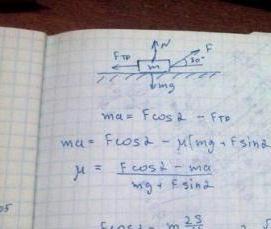 N
F
Fтр
m
30°
mg
ma = Fcosα - Fтр
ma = Fcosα - μ(mg + Fsinα
μ = Fcosα - ma
mg + Fsinα
05
2S